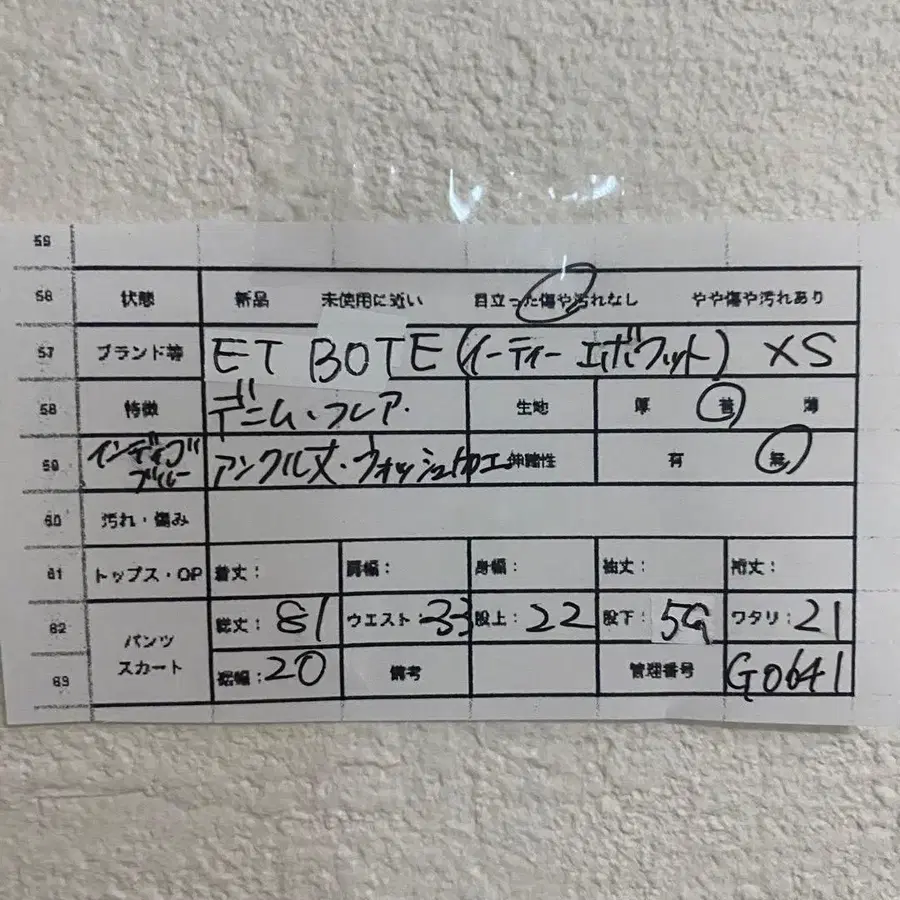 55
56 状態 新品 未使用に近い 目立った傷や汚れなし やや傷や汚れあり
57 ブランド等 ET BOTE (イーティー エボウット) XS
58 特徴 デニム・フレア. 生地 厚 普 薄
59 インディゴブルー アンクル丈・ウォッシュ加工 伸縮性 有 無
60 汚れ・傷み
61 トップス・OP 着丈: 肩幅: 身幅: 袖丈: 裄丈:
62 パンツ スカート 総丈: 81 ウエスト: 33 股上: 22 股下: 59 ワタリ: 21
63 裾幅: 20 備考 管理番号 G0641